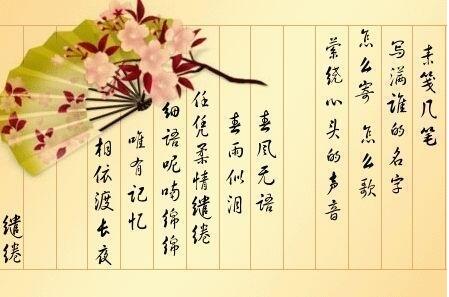 素笺几笔
写满谁的名字
怎么寄 怎么歌
萦绕心头的声音
春风无语
春雨似泪
任凭柔情缱绻
细语呢喃绵绵
唯有记忆
相依渡长夜
缱绻